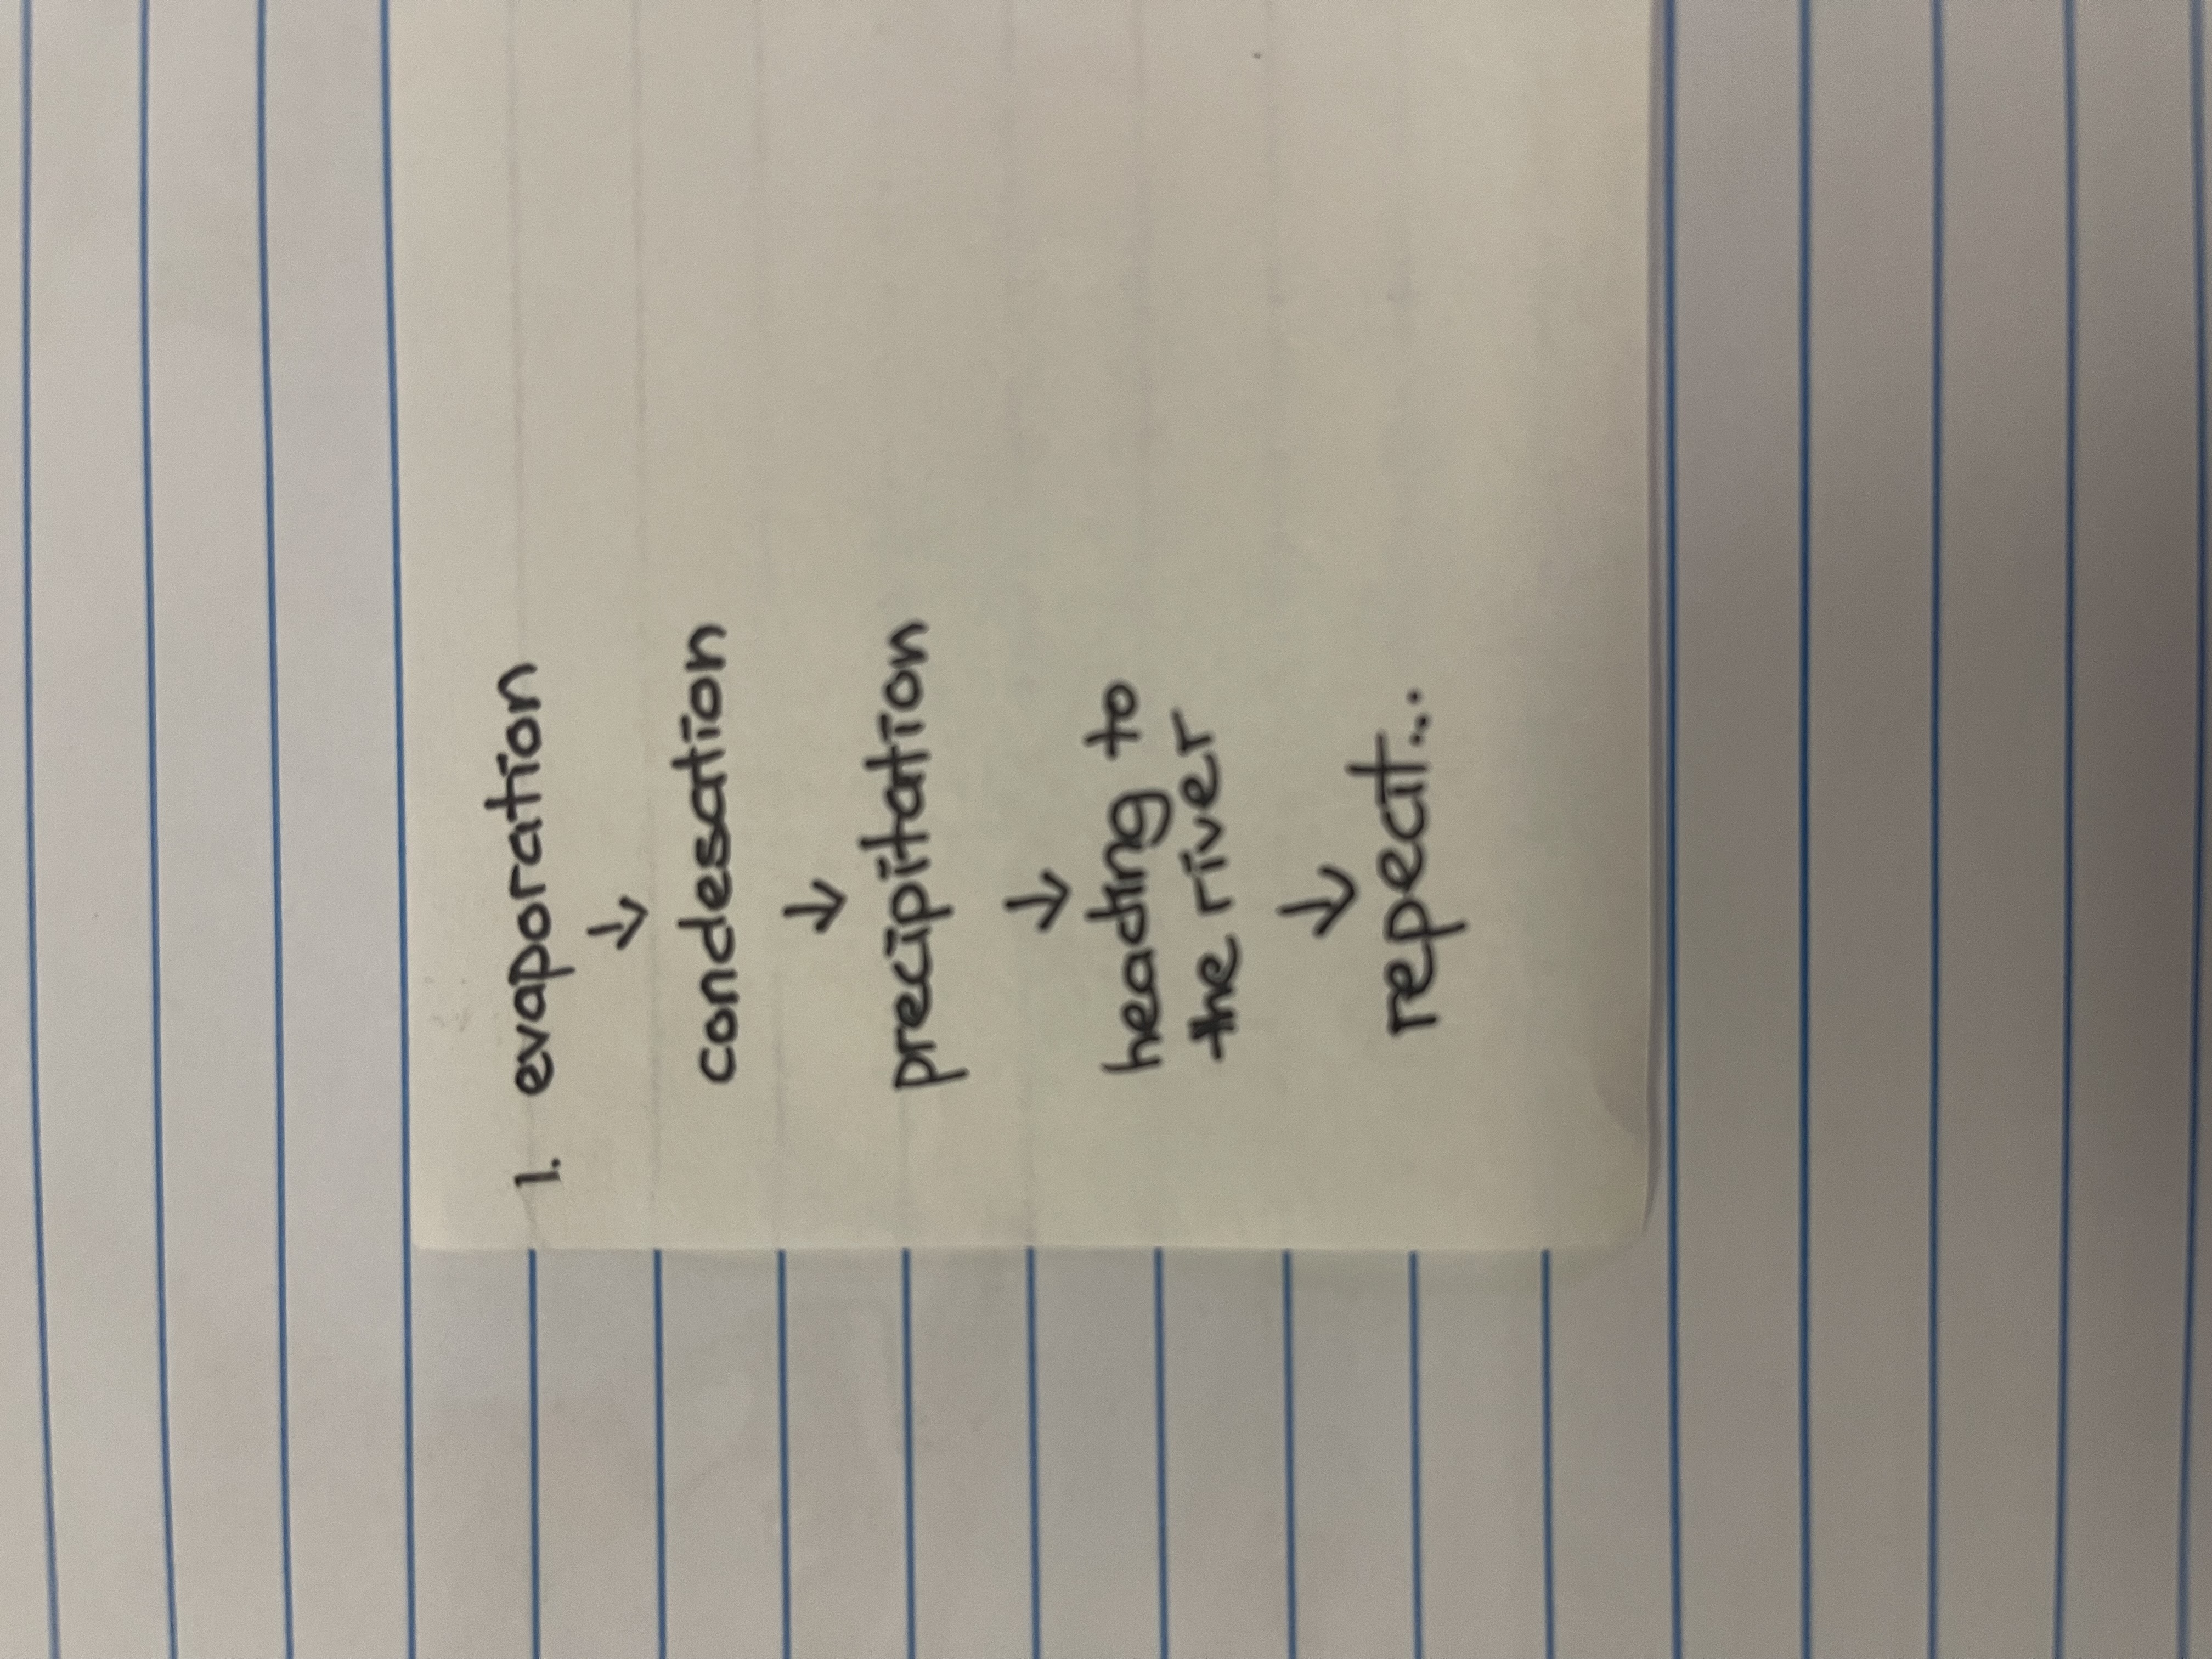 1. evaporation
↓
condesation
↓
precipitation
↓
heading to
the river
↓
repeat...